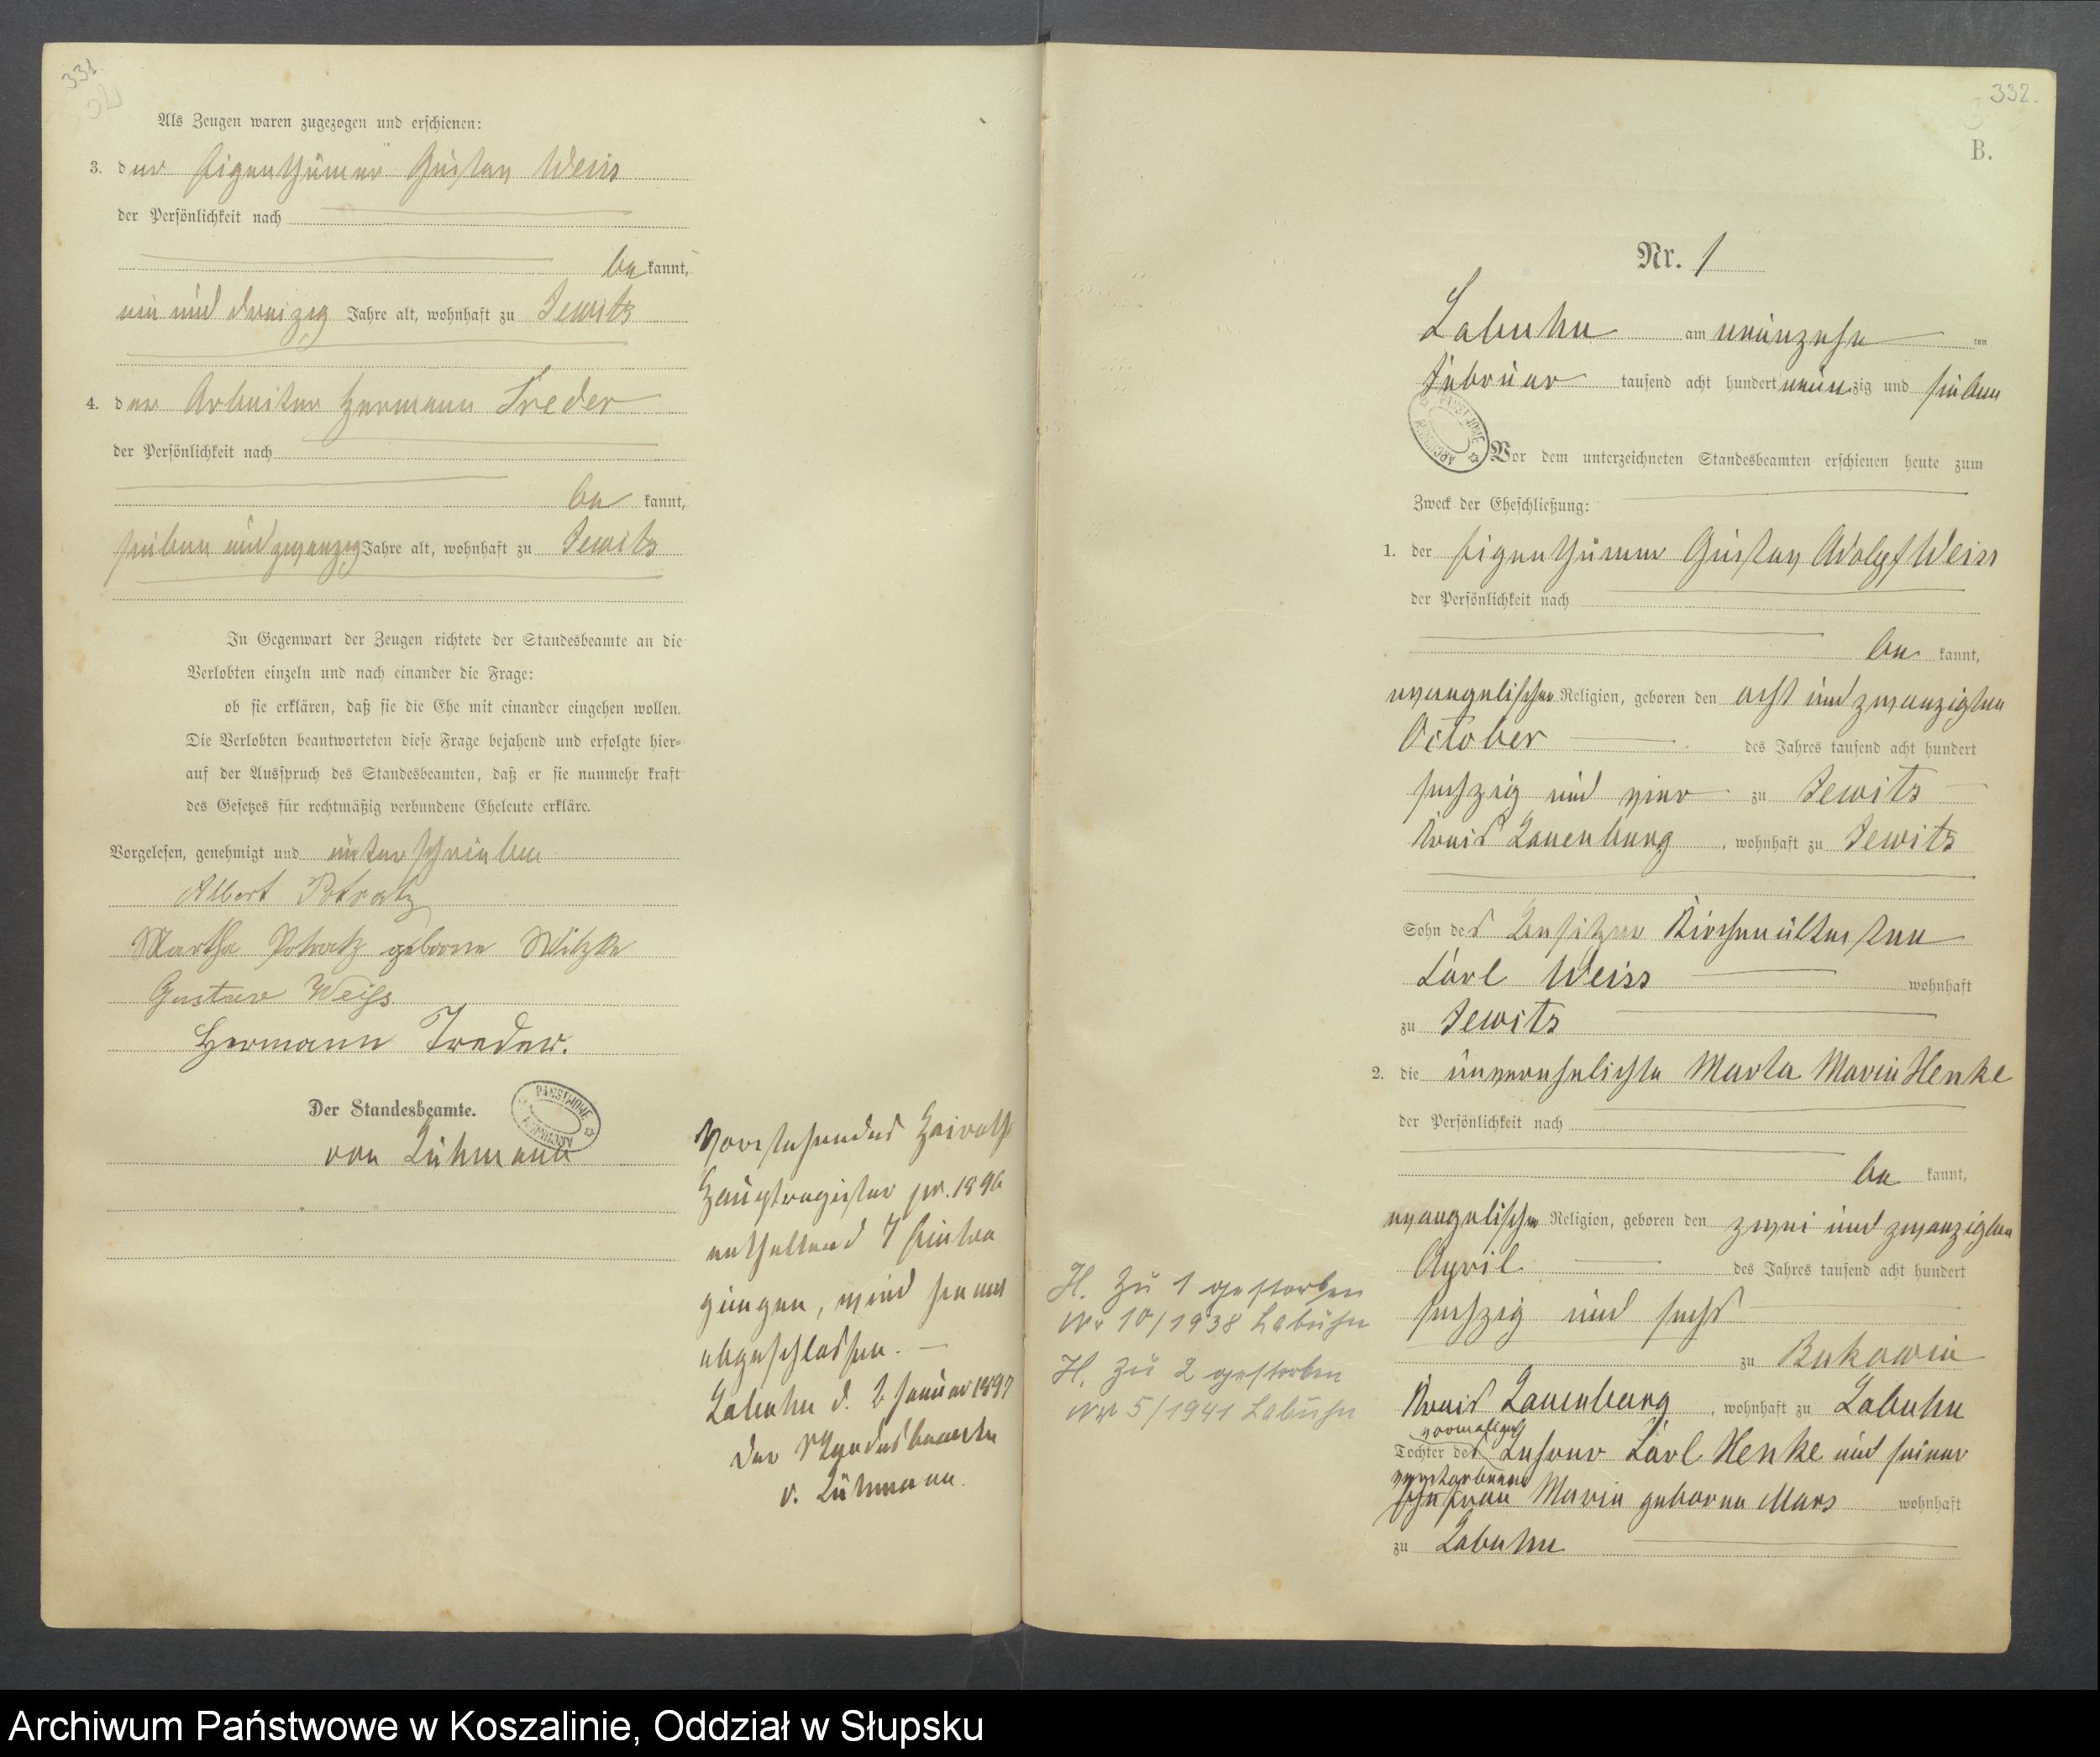 331.
Als Zeugen waren zugezogen und erschienen:
3. der Eigenthümer Gustav Weiss
der Persönlichkeit nach
be kannt,
ein und dreizig Jahre alt, wohnhaft zu Jewitz
4. der Arbeiter Hermann Treder
der Persönlichkeit nach
be kannt,
sieben und zwanzig Jahre alt, wohnhaft zu Jewitz
In Gegenwart der Zeugen richtete der Standesbeamte an die
Verlobten einzeln und nach einander die Frage:
ob sie erklären, daß sie die Ehe mit einander eingehen wollen.
Die Verlobten beantworteten diese Frage bejahend und erfolgte hier-
auf der Ausspruch des Standesbeamten, daß er sie nunmehr kraft
des Gesetzes für rechtmäßig verbundene Eheleute erkläre.
Vorgelesen, genehmigt und unterschrieben
Albert Potratz
Martha Potratz geborne Witzke
Gustav Weiss
Hermann Treder.
Der Standesbeamte.
von Lühmann
Vorstehendes Heiraths
Hauptregister pr. 1896
enthaltend 7 Eintra
gungen, wird hiermit
abgeschlossen. —
Labuhn d. 2 Januar 1897
Der Standesbeamte
v. Lühmann.
332.
B.
Nr. 1
Labuhn am neunzehn ten
Februar tausend acht hundert neun zig und sieben
Vor dem unterzeichneten Standesbeamten erschienen heute zum
Zweck der Eheschließung:
1. der Eigenthümer Gustav Adolf Weiss
der Persönlichkeit nach
be kannt,
evangelischer Religion, geboren den acht und zwanzigsten
October des Jahres tausend acht hundert
sechzig und vier zu Jewitz
Kreis Lauenburg, wohnhaft zu Jewitz
Sohn des Besitzer Kirchenältesten
Carl Weiss wohnhaft
zu Jewitz
2. die unverehelichte Marta Marie Henke
der Persönlichkeit nach
be kannt,
evangelischer Religion, geboren den zwei und zwanzigsten
April des Jahres tausend acht hundert
sechzig und sechs
zu Bukowin
Kreis Lauenburg, wohnhaft zu Labuhn
vormaligen
Tochter des Lehrer Carl Henke und seiner
verstorbenen
Ehefrau Marie geborne Mars wohnhaft
zu Labuhn
H. Zu 1 gestorben
Nr 10/1938 Labuhn
H. Zu 2 gestorben
Nr 5/1941 Labuhn
Archiwum Państwowe w Koszalinie, Oddział w Słupsku